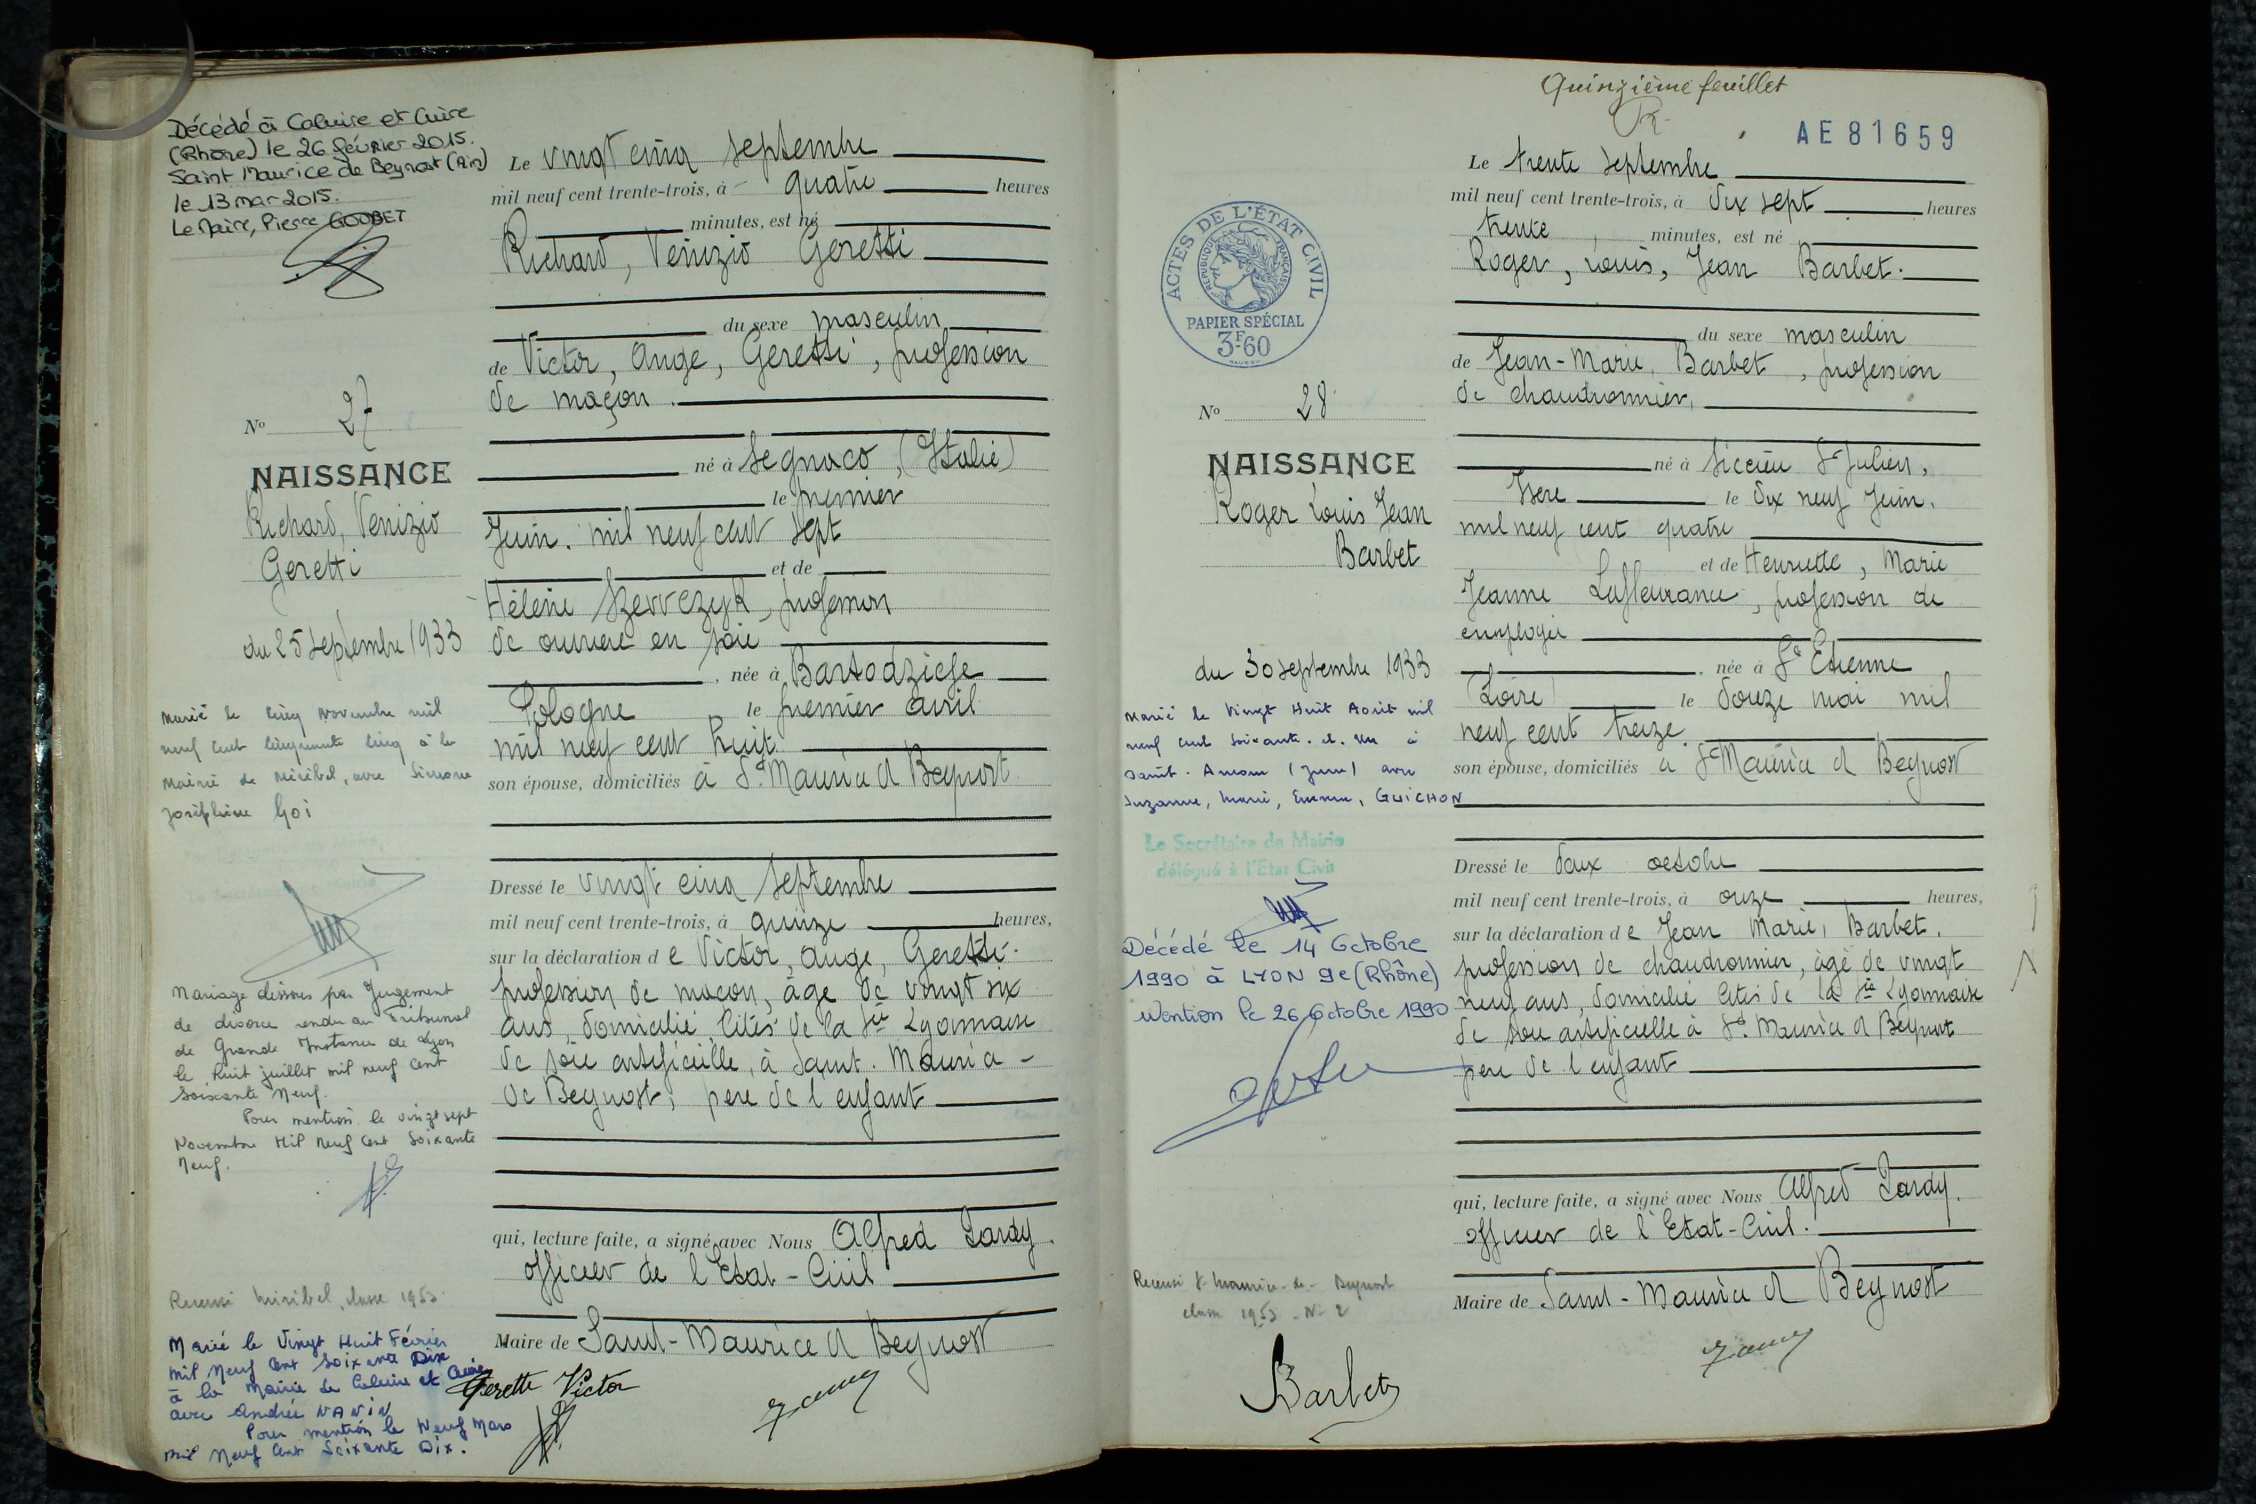 Décédé à Caluire et Cuire
(Rhône) le 26 février 2015.
Saint Maurice de Beynost (Ain)
le 13 mar 2015.
Le Maire, Pierre GOUBET
Le vingt cinq septembre
mil neuf cent trente-trois, à quatre heures
minutes, est né
Richard, Venizio Geretti
du sexe masculin
de Victor, Ange, Geretti, profession
de maçon.
né à Segnaco, (Italie)
le premier
Juin. mil neuf cent sept
et de
Hélène Szewczyk, profession
de ouvrière en soie
, née à
Pologne le premier avril
mil neuf cent huit.
son épouse, domiciliés à St Maurice d Beynost
Dressé le vingt cinq septembre
mil neuf cent trente-trois, à quinze heures,
sur la déclaration de Victor, Ange, Geretti.
profession de maçon, âgé de vingt six
ans, domicilié, Cités de la Sté Lyonnaise
de soie artificielle, à Saint. Maurice -
de Beynost, père de l'enfant
qui, lecture faite, a signé avec Nous Alfred Tardy.
officier de l'Etat-Civil
Maire de Saint-Maurice d Beynost
Gerette Victor
No 27
NAISSANCE
Richard, Venizio
Geretti
du 25 septembre 1933
Marié le cinq Novembre mil
neuf cent cinquante cinq à la
Mairie de Miribel, avec Simone
Joséphine Goi
Mariage dissous par Jugement
de divorce rendu au Tribunal
de Grande Instance de Lyon
le huit juillet mil neuf cent
soixante neuf.
Pour mention le vingt sept
Novembre Mil neuf cent soixante
Neuf.
Recensé Miribel, classe 1953.
Marié le Vingt Huit Février
mil neuf cent soixante Dix
à la Mairie de Caluire et Cuire
avec Andrée NANIN
Pour mention le Neuf Mars
mil neuf cent soixante Dix.
Quinzième feuillet
AE 81659
Le trente septembre
mil neuf cent trente-trois, à dix sept heures
trente minutes, est né
Roger, Louis, Jean Barbet.
du sexe masculin
de Jean-Marie, Barbet, profession
de chaudronnier,
né à Siccieu St Julien,
Isère le dix neuf Juin.
mil neuf cent quatre
et de Henriette, Marie
Jeanne Lafleurance, profession de
employée
, née à St Etienne
(Loire) le douze mai mil
neuf cent treize.
son épouse, domiciliés à St Maurice d Beynost
Dressé le deux octobre
mil neuf cent trente-trois, à onze heures,
sur la déclaration de Jean Marie, Barbet.
profession de chaudronnier, âgé de vingt
neuf ans, domicilié Cités de la Sté Lyonnaise
de soie artificielle à St Maurice d Beynost
père de l'enfant
qui, lecture faite, a signé avec Nous Alfred Tardy.
officier de l'Etat-Civil.
Maire de Saint-Maurice d Beynost
ACTES DE L'ÉTAT CIVIL
RÉPUBLIQUE FRANÇAISE
PAPIER SPÉCIAL
3F60
No 28
NAISSANCE
Roger Louis Jean
Barbet
du 30 septembre 1933
Marié le Vingt Huit Août mil
neuf cent soixante. et. un à
Saint. Amour (Jura) avec
Suzanne, Marie, GUICHON
Le Secrétaire de Mairie
délégué à l'Etat Civil
Décédé le 14 Octobre
1990 à LYON 9e (Rhône)
Mention le 26 Octobre 1990
Recensé St Maurice-de-Beynost
classe 1953 - No 2
Barbet